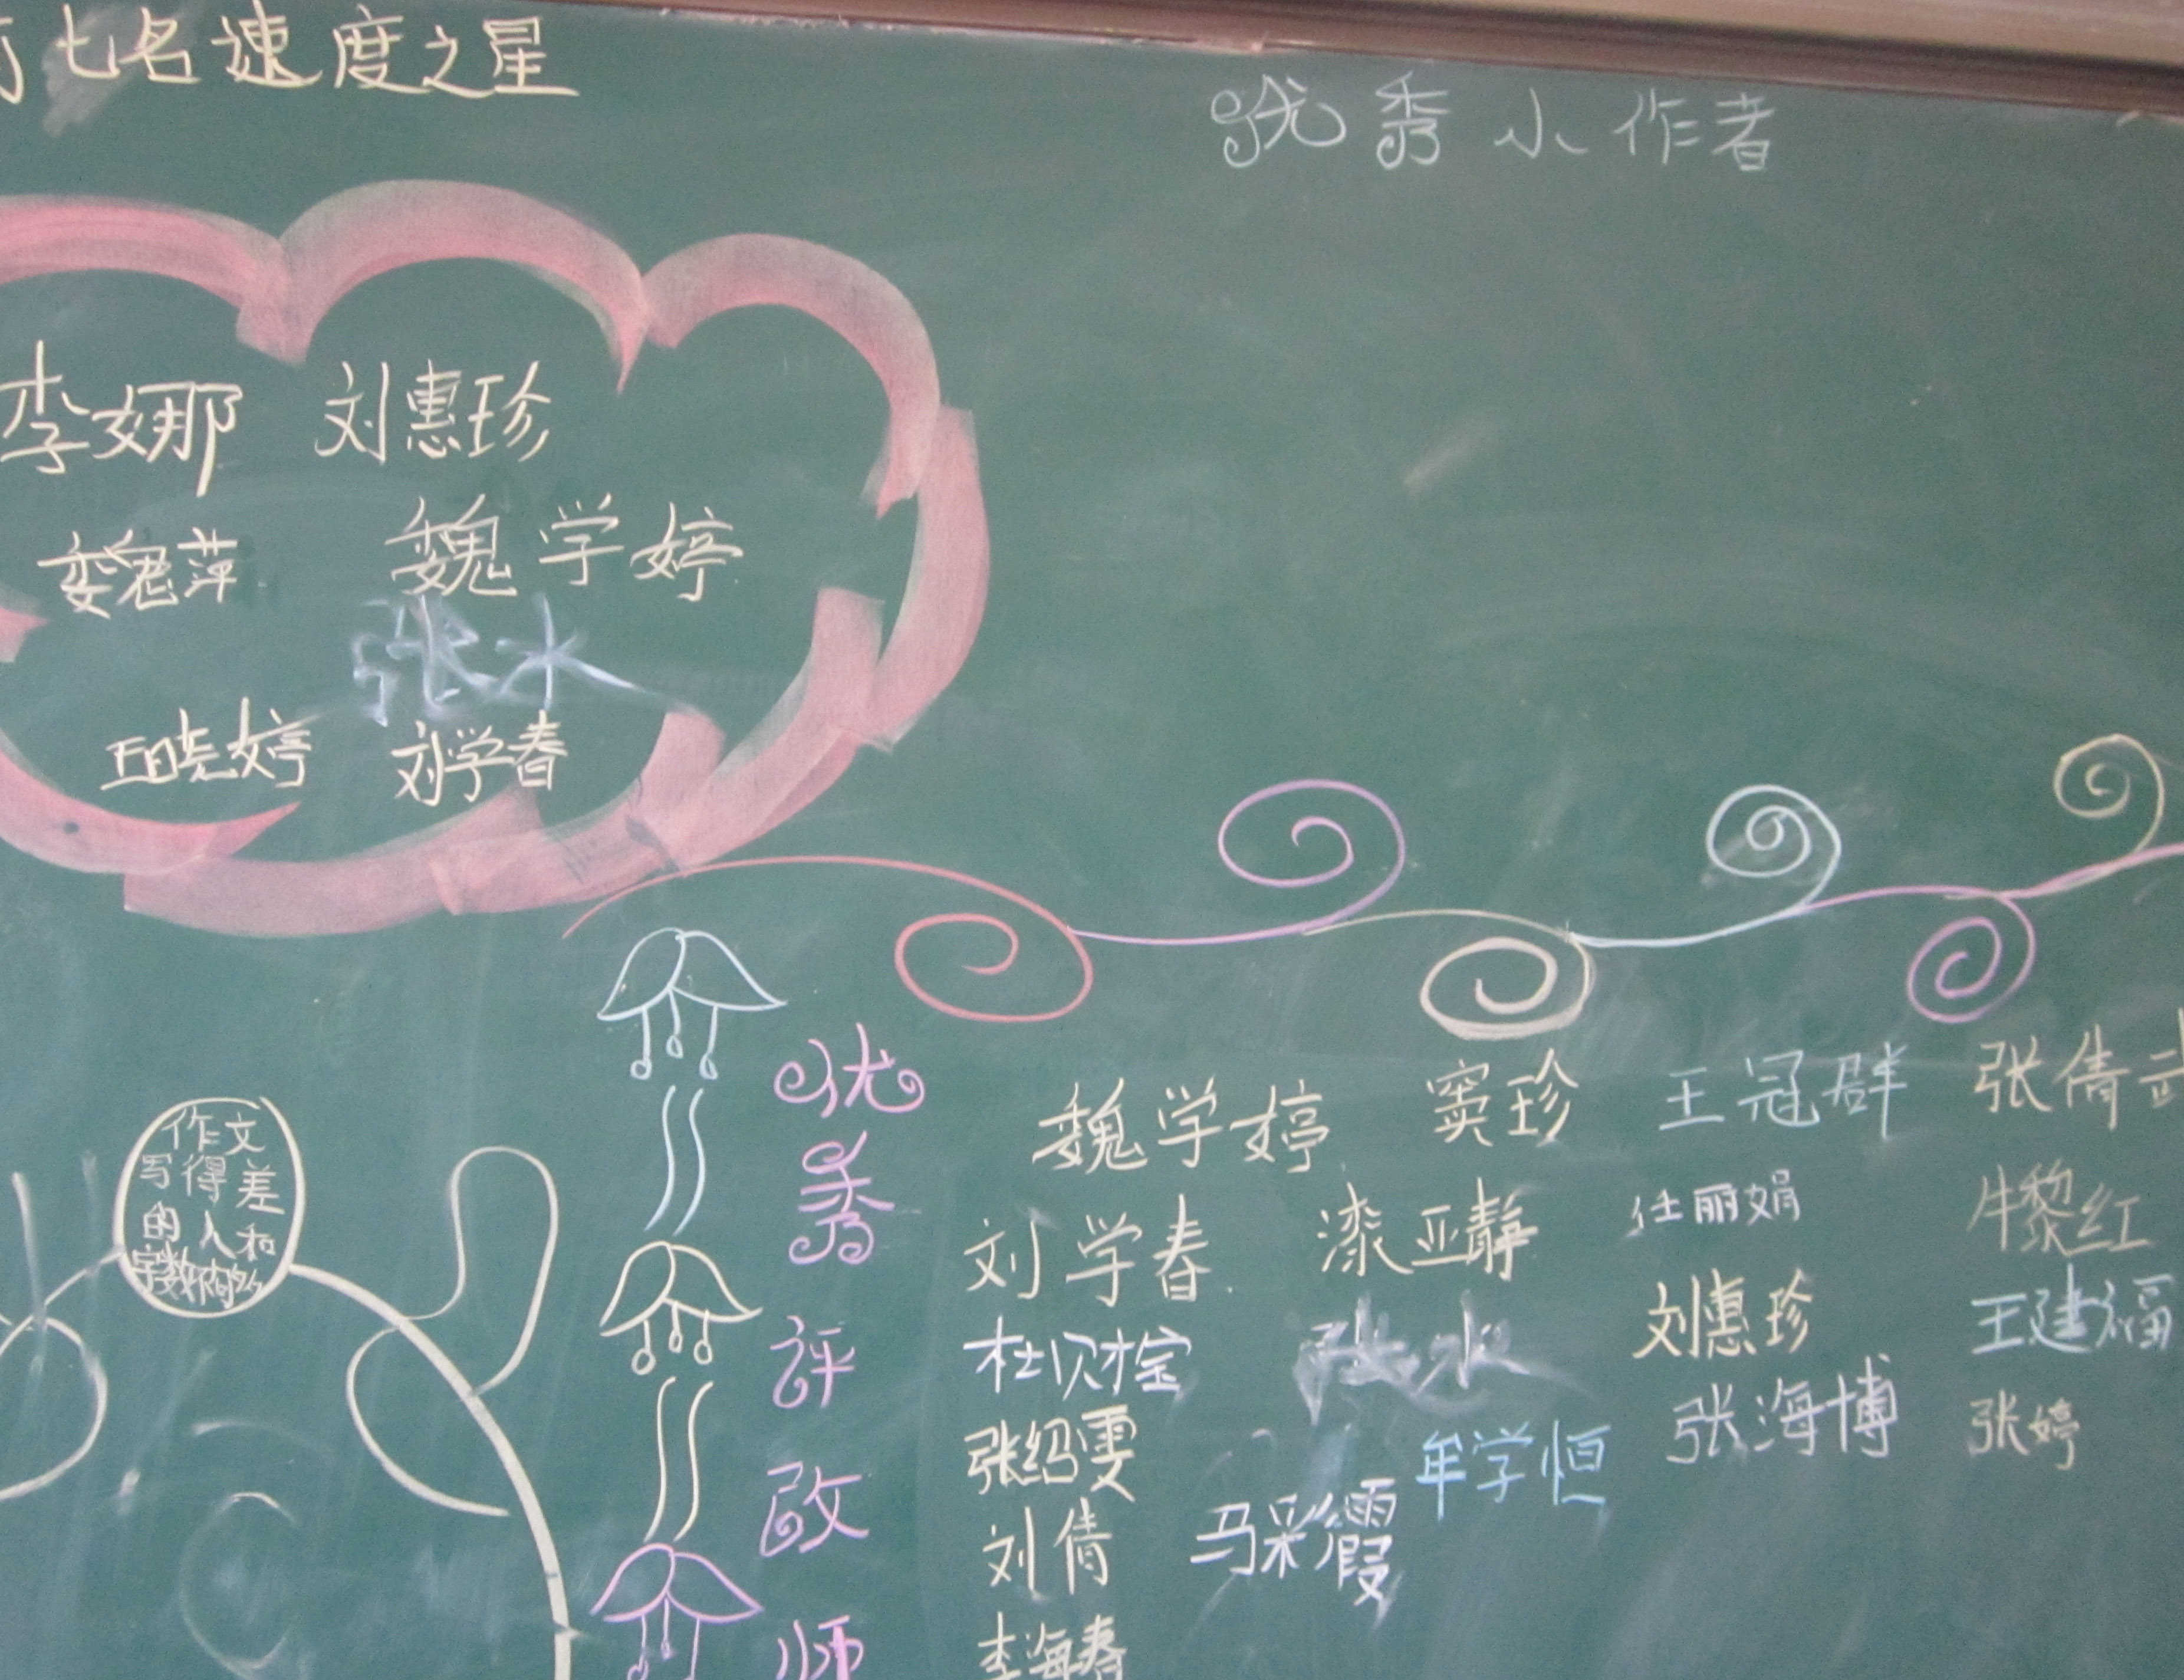 七名速度之星
优秀小作者
李娜 刘惠珍
魏萍 魏学婷
张水
王晓婷 刘学春
作文
写得差
的人和
字数
优秀评改师
魏学婷 窦珍 王冠群 张倩
刘学春 漆亚静 任丽娟 牛黎红
杜贝宝 张水 刘惠珍 王建福
张绍雯 牟学恒 张海博 张婷
刘倩 马彩霞
李海春